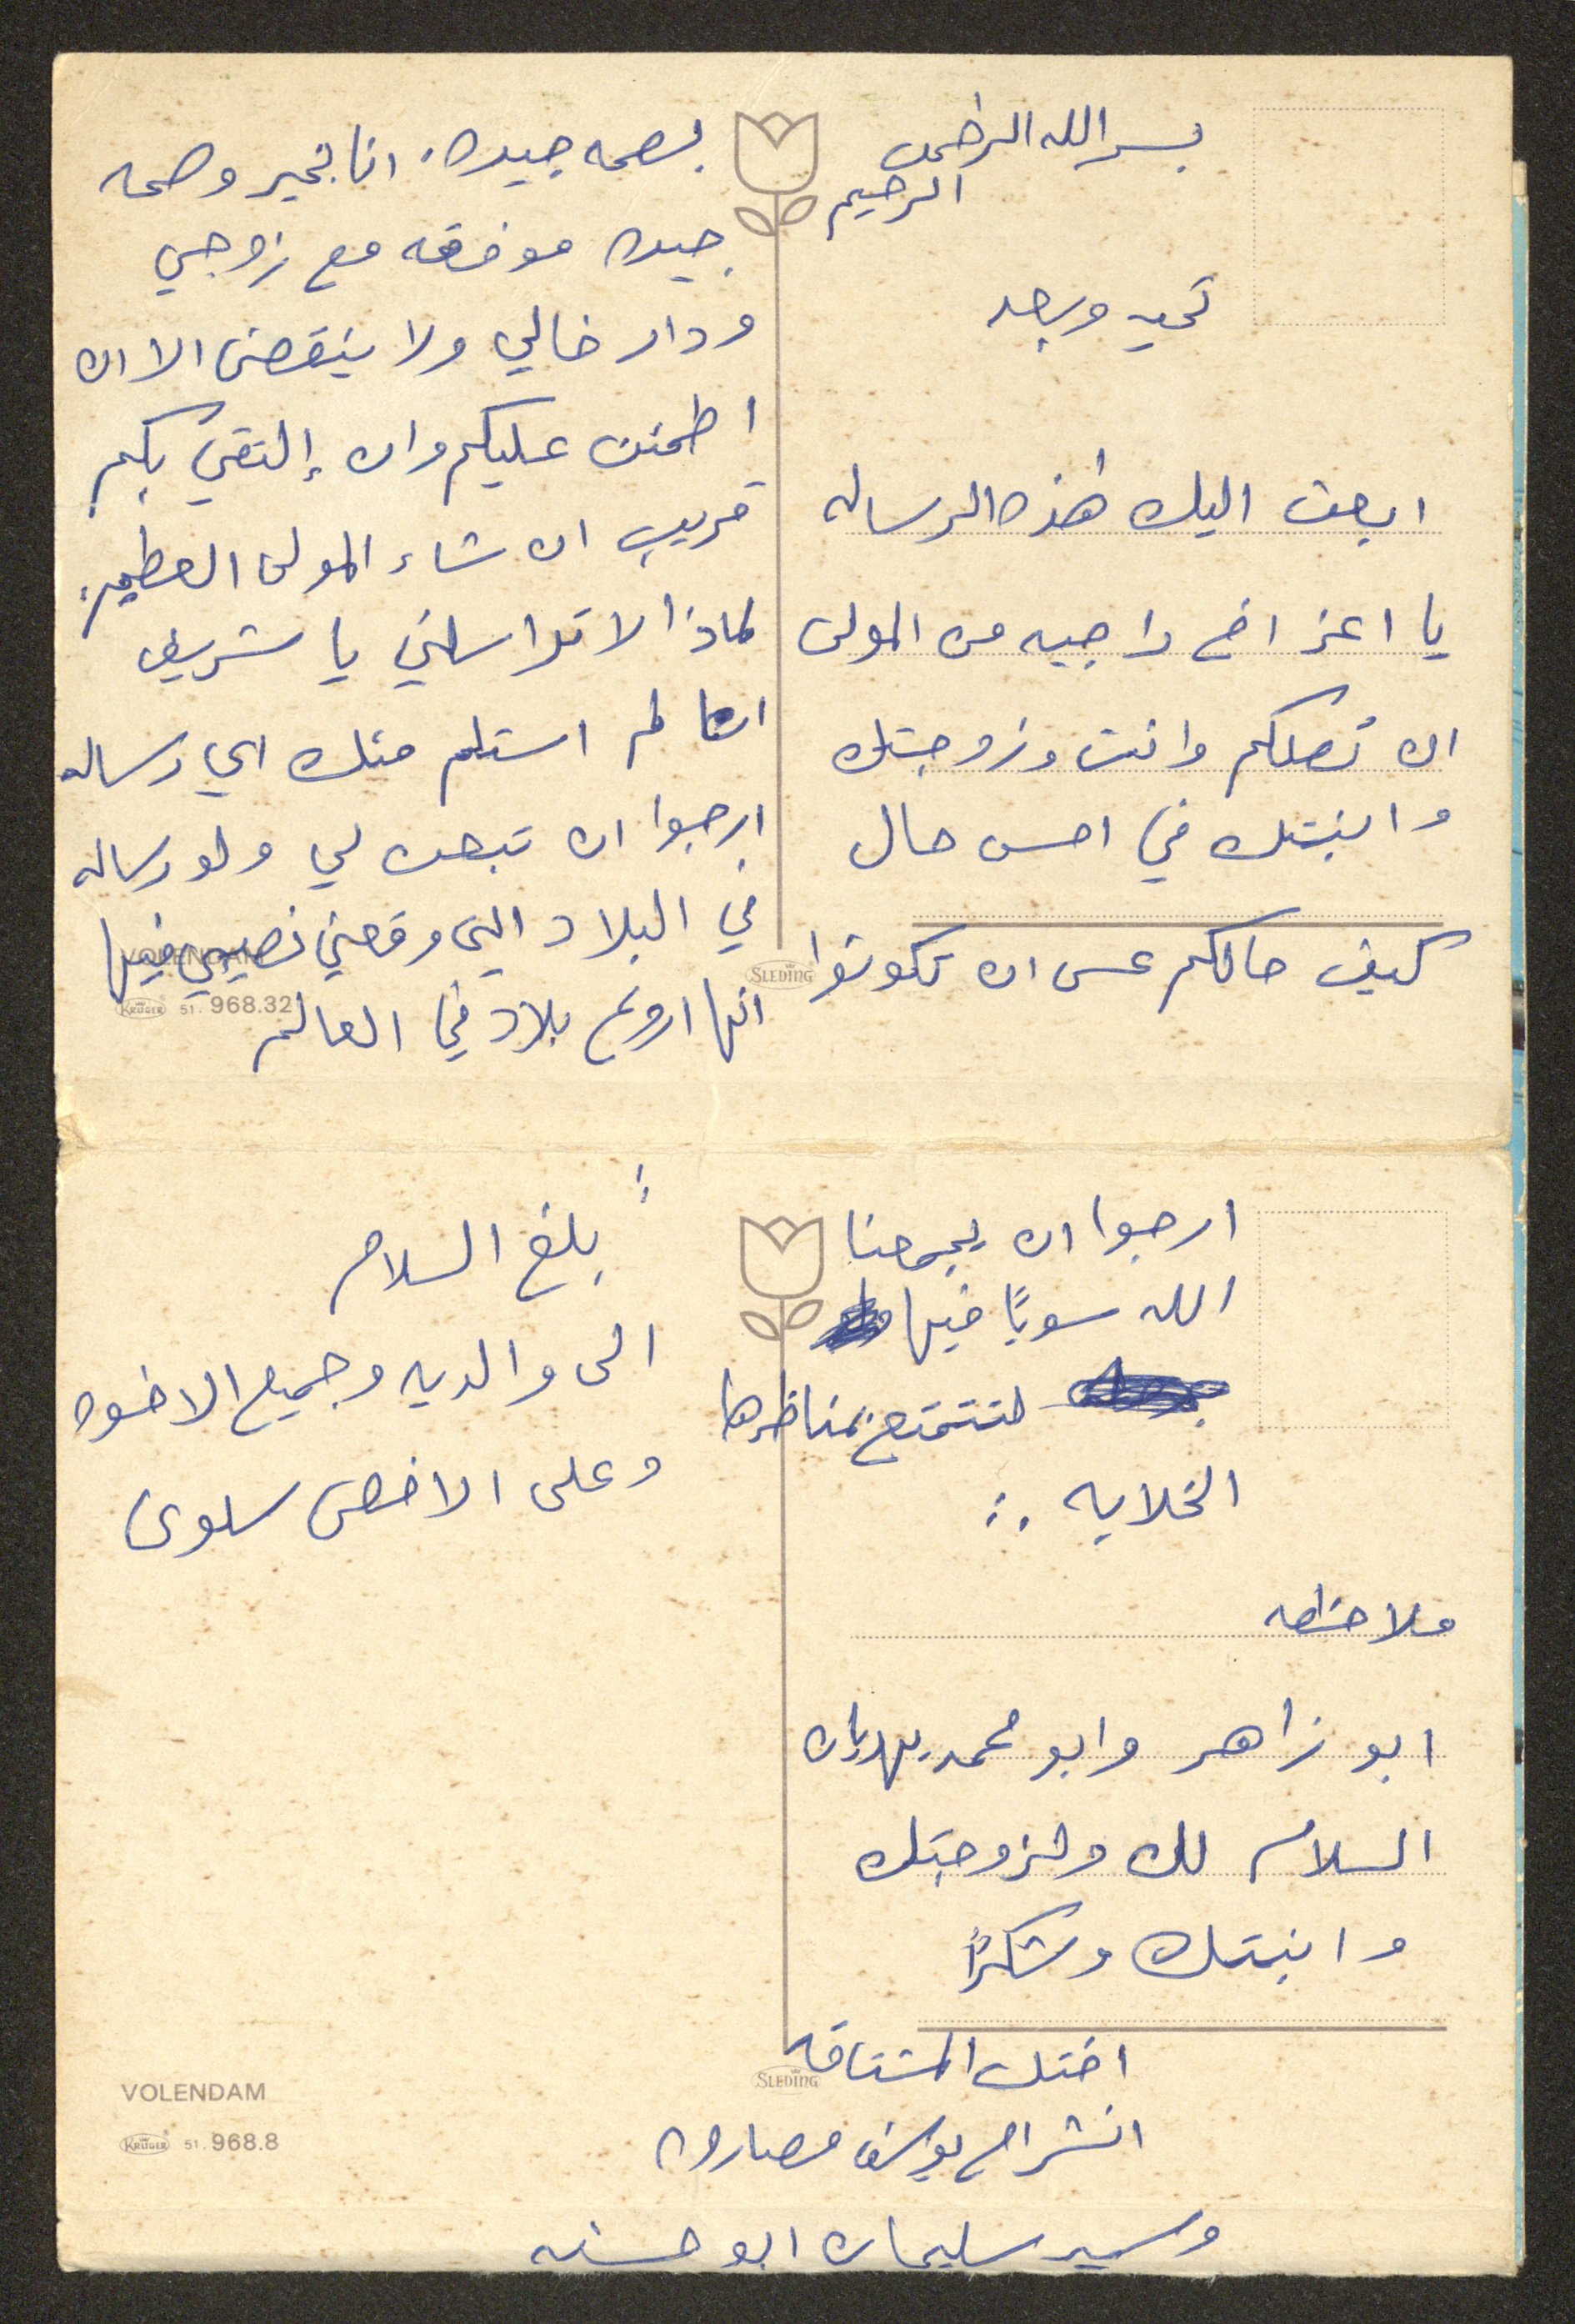 بسم الله الرحمن
الرحيم
تحيه وبعد
ابعث اليك هذه الرساله
يا اعز اخ راجيه من المولى
ان تصلكم وانت وزوجتك
وابنتك في احسن حال
كيف حالكم عسى ان تكونوا
بصحه جيده. انا بخير وصحه
جيده موفقه مع زوجي
ودار خالي ولا ينقصنى الا ان
اطمئن عليكم وان إلتقي بكم
قريب ان شاء المولى العظيم.
لماذا لا تراسلني يا شريف
انا لم استلم منك اي رساله
ارجوا ان تبعث لي ولو رساله
في البلاد التي وقعني نصيبي فيها
انها اروع بلاد في العالم
VOLENDAM
KRÜGER 51. 968.32
SLEDING
ارجوا ان يجمعنا
الله سويًا فيها
لنتمتع بمناظرها
الخلابه ..
ملاحظه
ابو زاهر وابو محمد يهديان
السلام لك ولزوجتك
وابنتك وشكرًا
اختك المشتاقه
انشراح يوسف مصاروه
وسمير سليمان ابو حسنه
بلغ السلام
الى والديه وجميع الاخوه
وعلى الاخص سلوى
VOLENDAM
KRÜGER 51. 968.8
SLEDING